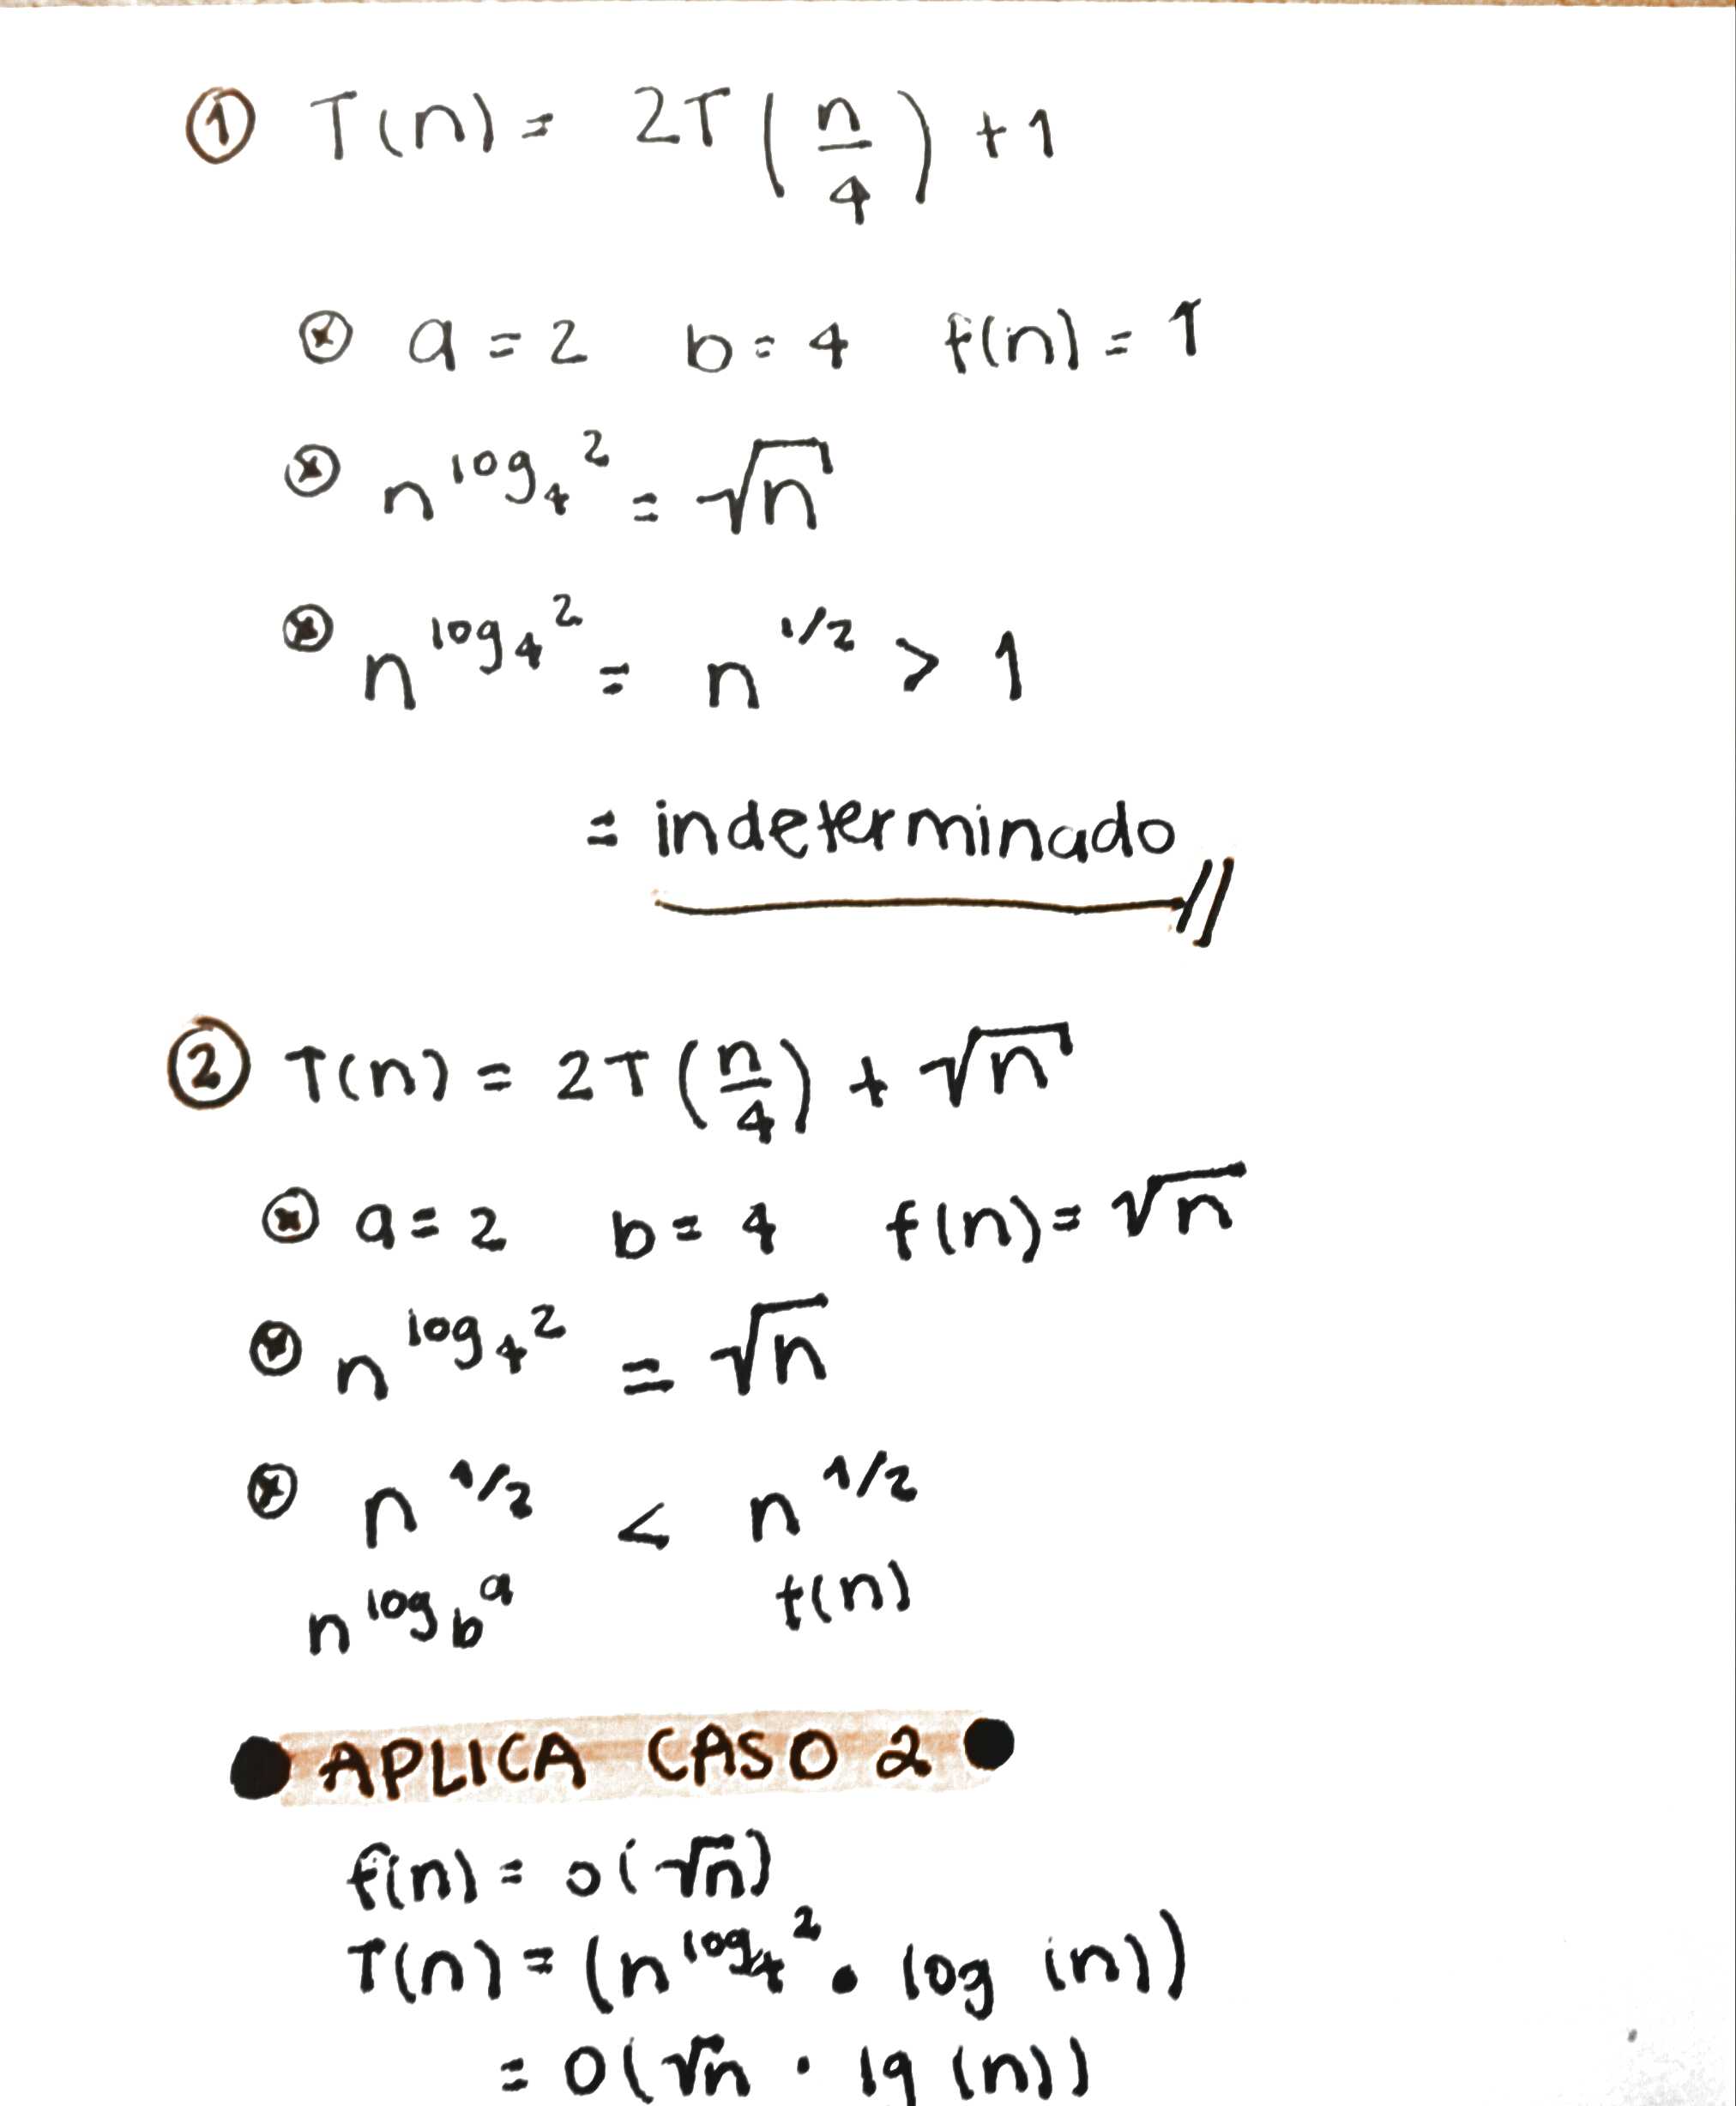 ① T(n) = 2T(n/4) + 1
ⓧ a = 2 b = 4 f(n) = 1
ⓧ n^log₄2 = √n
ⓧ n^log₄2 = n^1/2 > 1
= indeterminado //
② T(n) = 2T(n/4) + √n
ⓧ a = 2 b = 4 f(n) = √n
ⓧ n^log₄2 = √n
ⓧ n^1/2 < n^1/2
n^log_b a f(n)
● APLICA CASO 2 ●
f(n) = o(√n)
T(n) = (n^log₄2 • log (n))
= O(√n · lg (n))